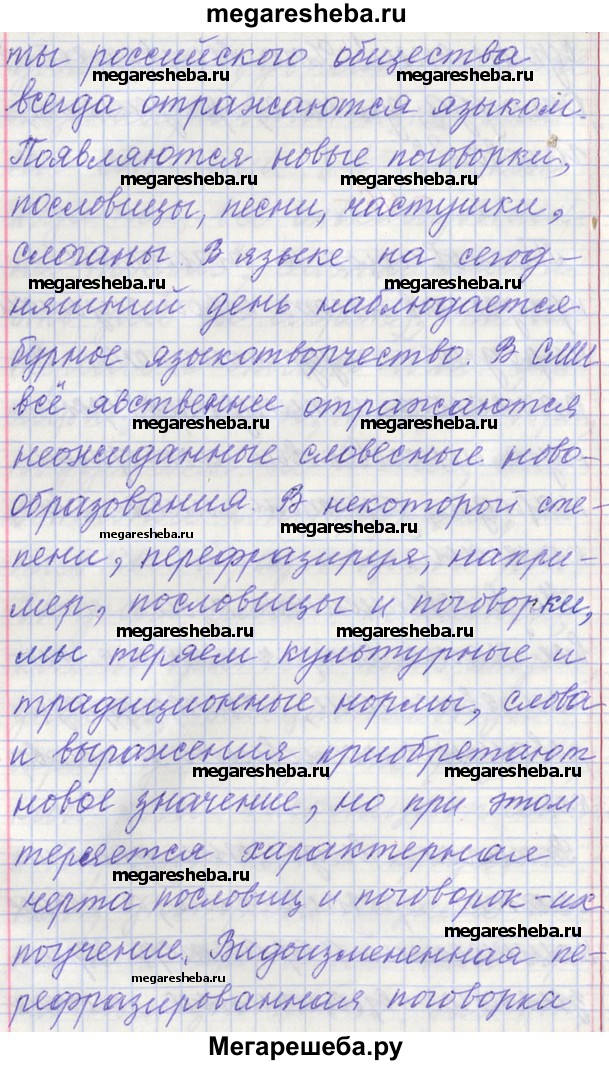 megaresheba.ru
ты российского общества
megaresheba.ru megaresheba.ru
всегда отражаются языком.
Появляются новые поговорки,
megaresheba.ru megaresheba.ru
пословицы, песни, частушки,
слоганы. В языке на сегод-
megaresheba.ru megaresheba.ru
няшний день наблюдается
бурное языкотворчество. В СМИ
megaresheba.ru
всё явственнее отражаются
megaresheba.ru megaresheba.ru
неожиданные словесные ново-
образования. В некоторой сте-
megaresheba.ru megaresheba.ru
пени, перефразируя, напри-
мер, пословицы и поговорки,
megaresheba.ru megaresheba.ru
мы теряем культурные и
традиционные нормы, слова
и выражения приобретают
megaresheba.ru megaresheba.ru
новое значение, но при этом
теряется характерная
megaresheba.ru
черта пословиц и поговорок - их
megaresheba.ru
поучение. Видоизмененная пе-
megaresheba.ru
рефразированная поговорка
Мегарешеба.ру